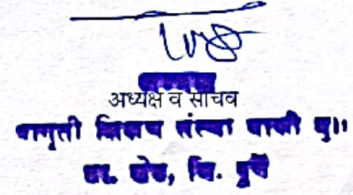 अध्यक्ष व सचिव
जागृती शिक्षण संस्था वाकी बु।।
ता. खेड, जि. पुणे